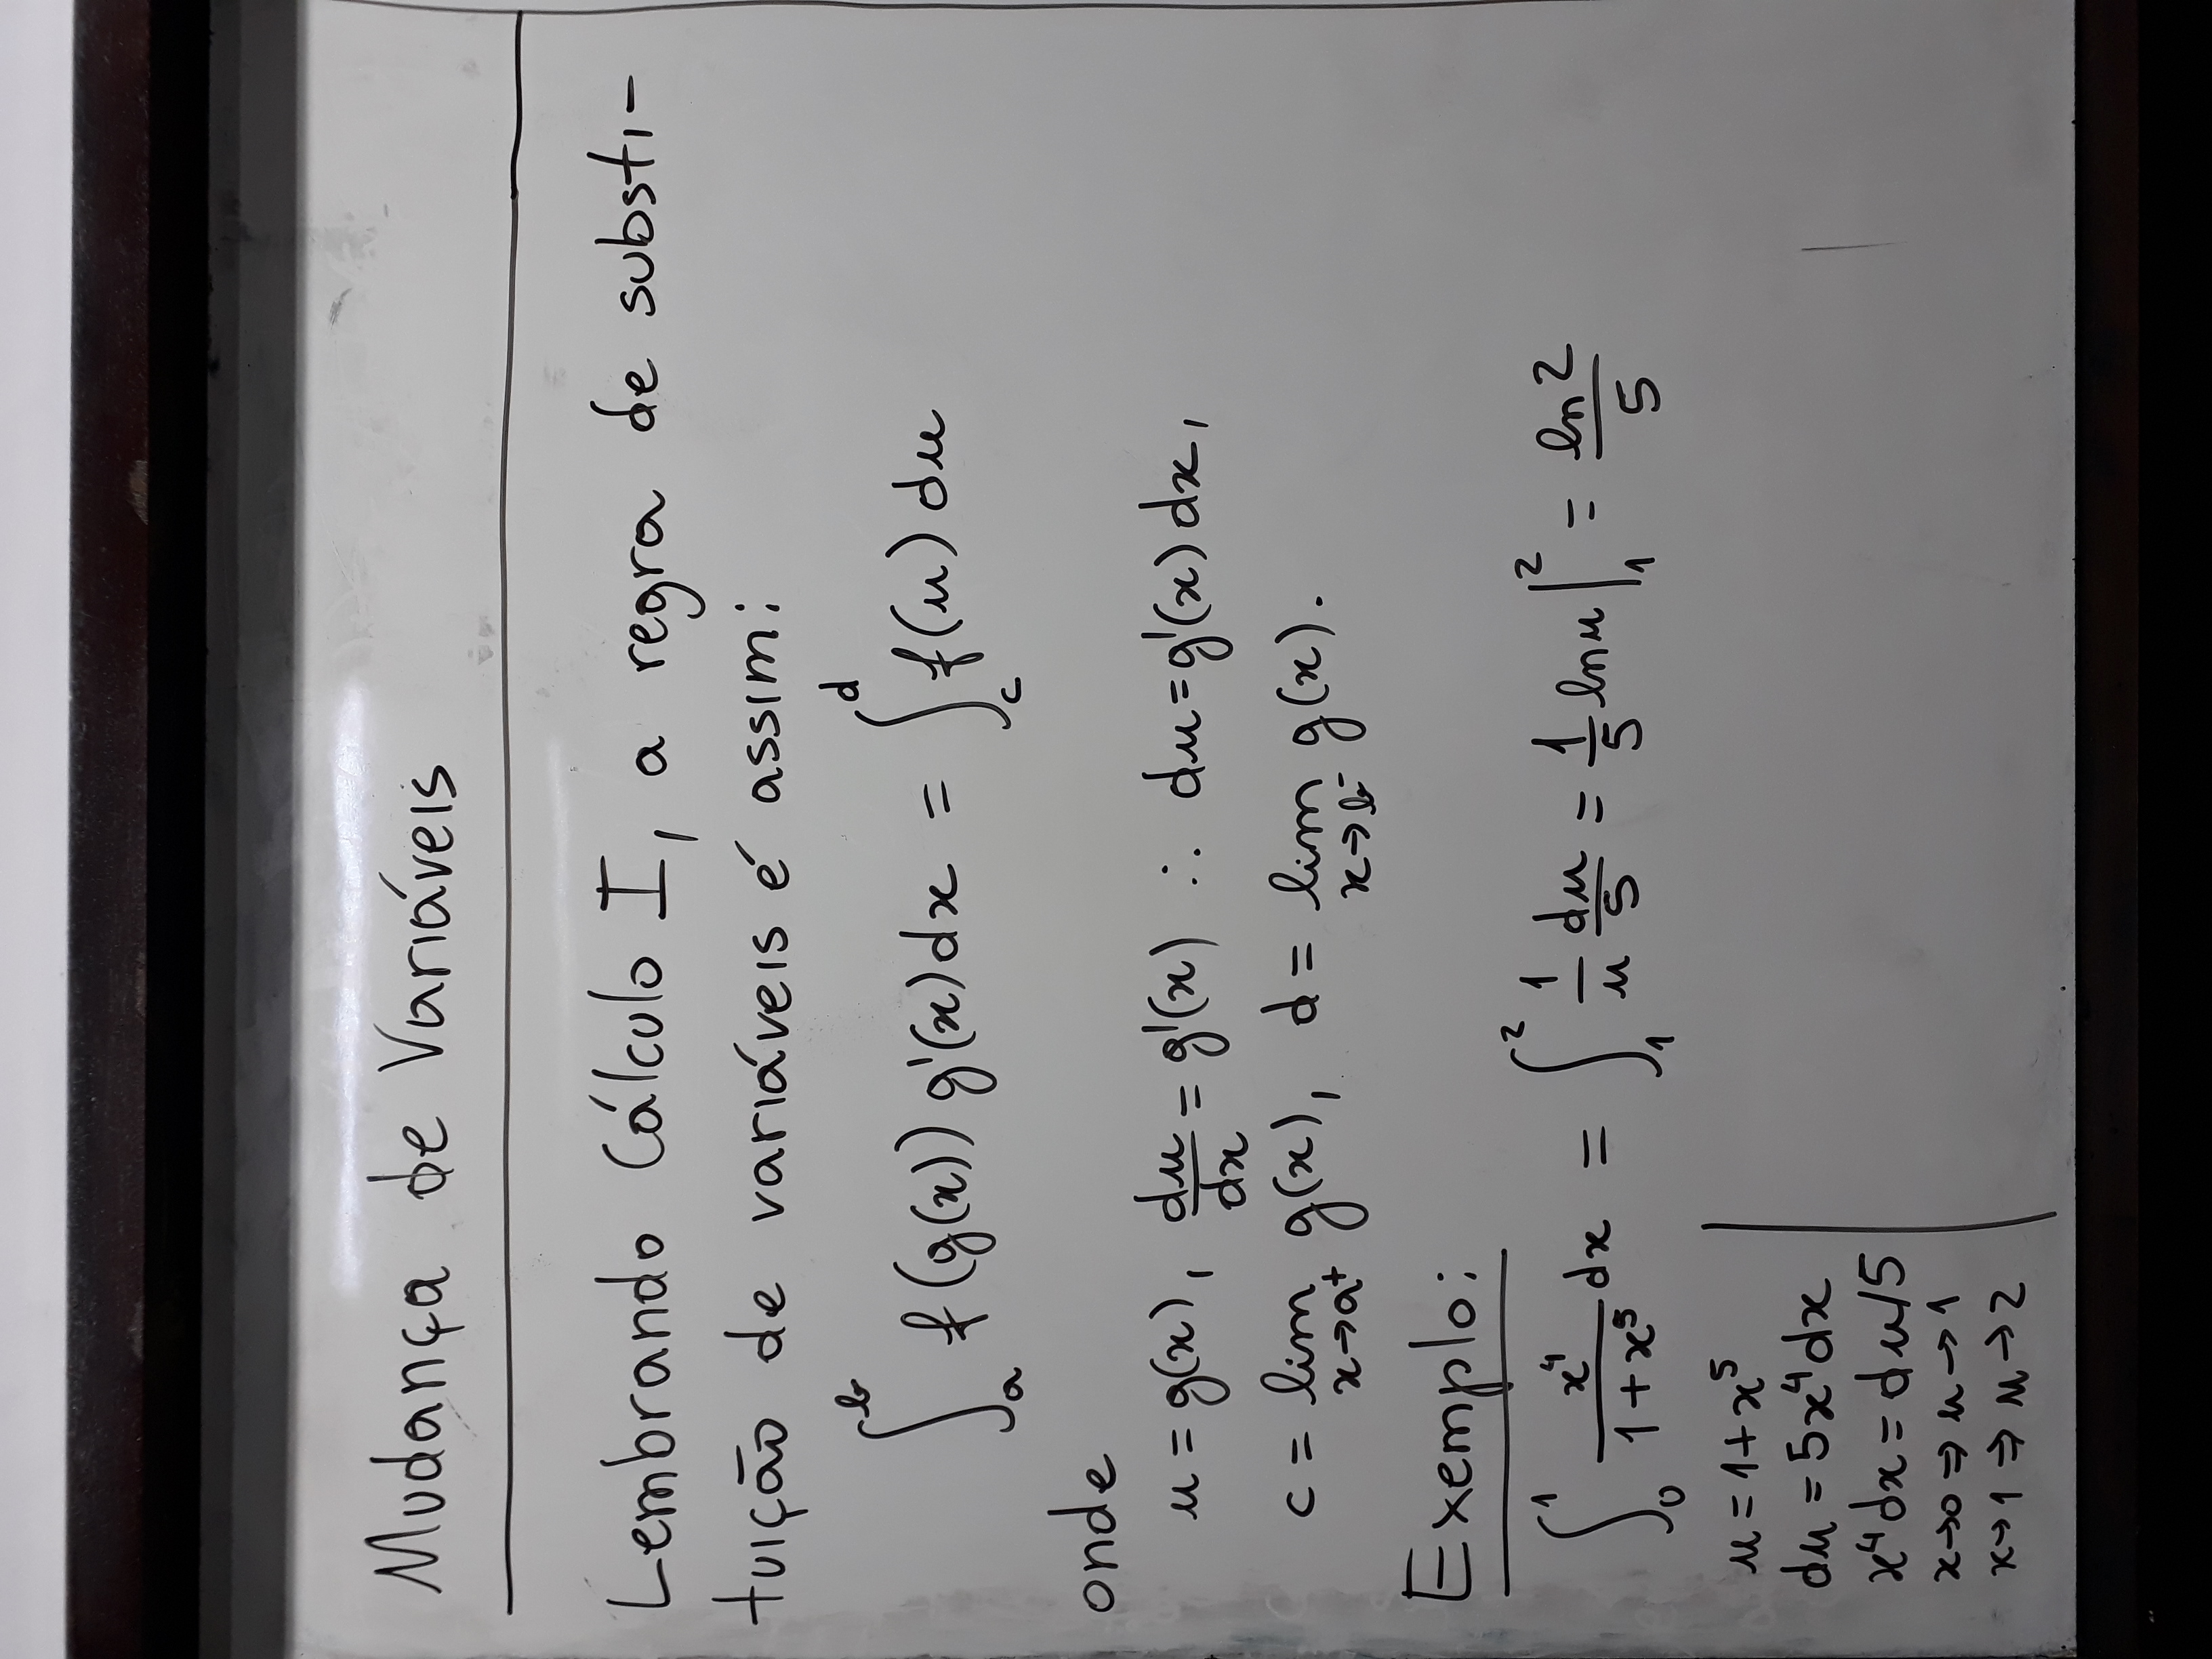 Mudança de Variáveis
Lembrando Cálculo I, a regra de substi-
tuição de variáveis é assim:
∫_a^b f(g(x)) g'(x) dx = ∫_c^d f(u) du
onde
u = g(x), du/dx = g'(x) ∴ du = g'(x) dx,
c = lim_{x→a⁺} g(x), d = lim_{x→b⁻} g(x).
Exemplo:
∫_0^1 x⁴/(1+x⁵) dx = ∫_1^2 1/u du/5 = 1/5 ln u |_1^2 = ln 2/5
u = 1+x⁵
du = 5x⁴dx
x⁴dx = du/5
x→0 ⇒ u→1
x→1 ⇒ u→2